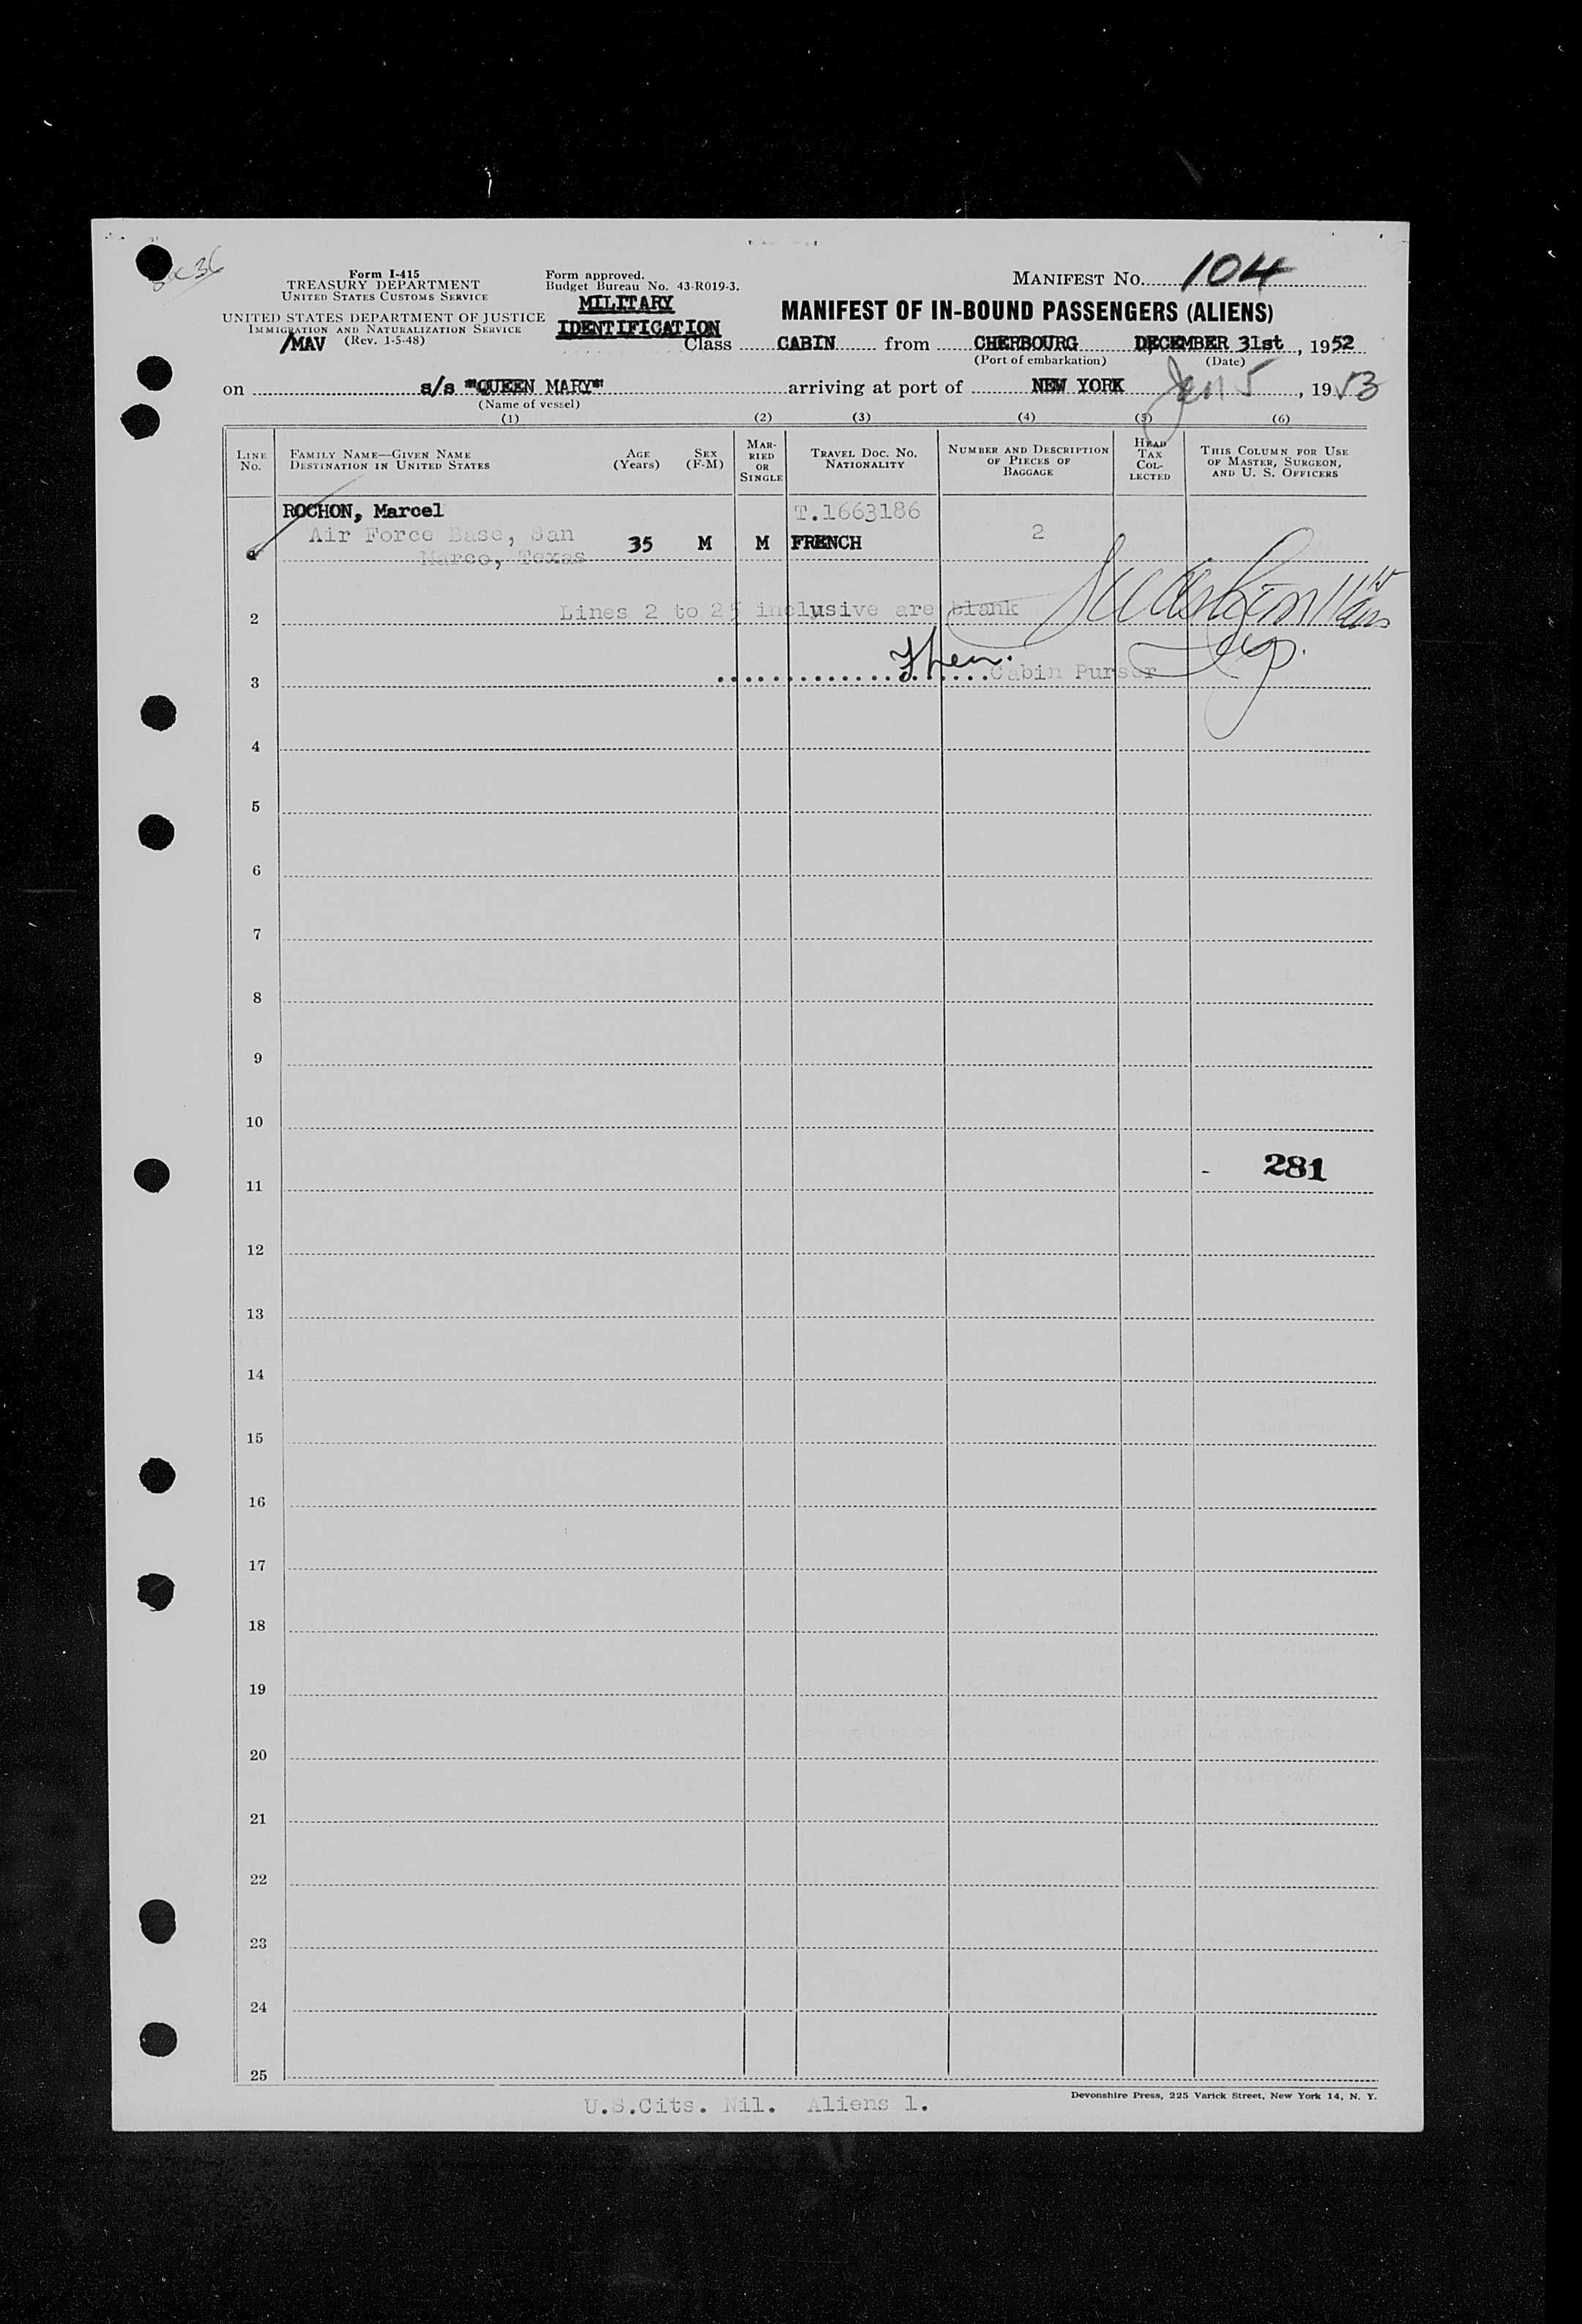 Form I-415
TREASURY DEPARTMENT
UNITED STATES CUSTOMS SERVICE
UNITED STATES DEPARTMENT OF JUSTICE
IMMIGRATION AND NATURALIZATION SERVICE
/MAV (Rev. 1-5-48)
Form approved.
Budget Bureau No. 43-R019-3.
MILITARY
IDENTIFICATION
MANIFEST NO. 104
MANIFEST OF IN-BOUND PASSENGERS (ALIENS)
Class CABIN from CHERBOURG DECEMBER 31st, 1952
(Port of embarkation) (Date)
on s/s "QUEEN MARY" arriving at port of NEW YORK Jan 5, 1953
(Name of vessel)
(1) (2) (3) (4) (5) (6)
LINE NO. FAMILY NAME—GIVEN NAME DESTINATION IN UNITED STATES AGE (Years) SEX (F-M) MARRIED OR SINGLE TRAVEL DOC. NO. NATIONALITY NUMBER AND DESCRIPTION OF PIECES OF BAGGAGE HEAD TAX COLLECTED THIS COLUMN FOR USE OF MASTER, SURGEON, AND U. S. OFFICERS
ROCHON, Marcel T.1663186
Air Force Base, San 35 M M FRENCH 2
Marco, Texas
2 Lines 2 to 25 inclusive are blank
3 Cabin Purser
4
5
6
7
8
9
10
281
11
12
13
14
15
16
17
18
19
20
21
22
23
24
25
U.S.Cits. Nil. Aliens 1.
Devonshire Press, 225 Varick Street, New York 14, N. Y.